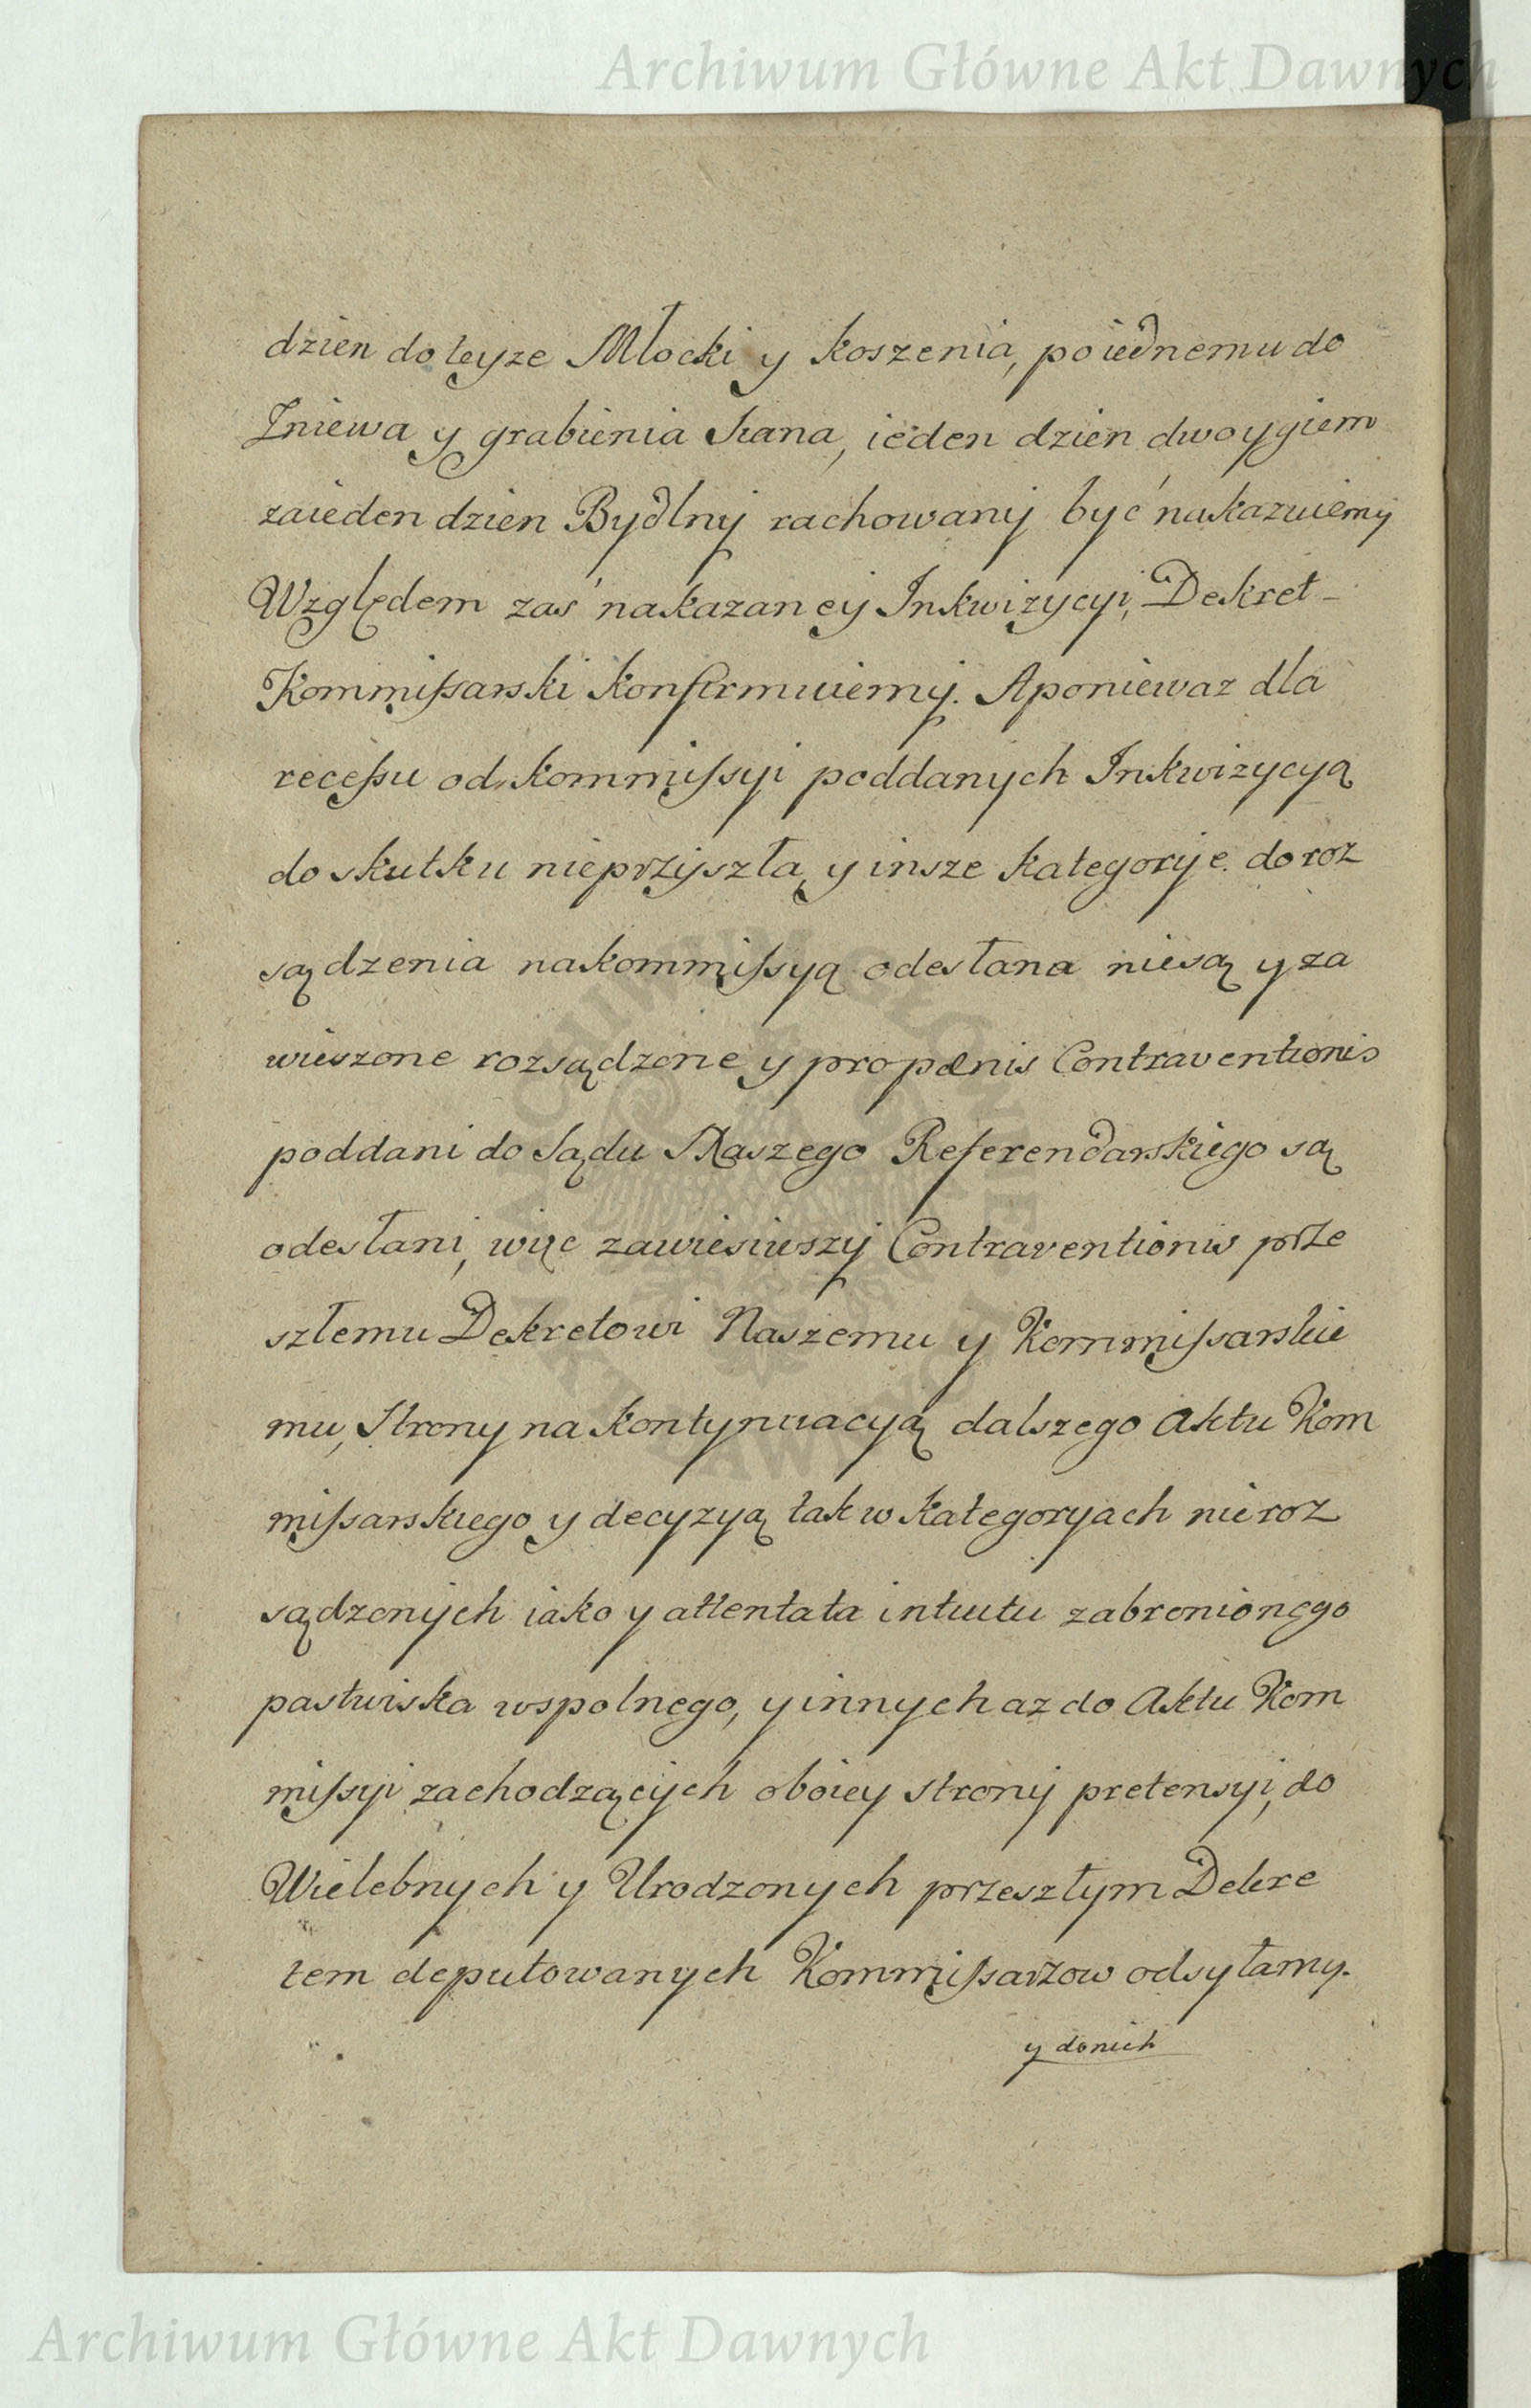 Archiwum Główne Akt Dawnych
dzien do teyze Młocki y koszenia, po iednemu do
Zniewa y grabienia siana, ieden dzien dwoygiem
za ieden dzien Bydlny rachowany być nakazuiemy
Względem zaś nakazaney Inkwizycyi, Dekret –
Kommissarski konfirmuiemy. A poniewaz dla
recessu od kommissyi poddanych Inkwizycyą
do skutku nieprzyszła, y insze kategorye do roz
sądzenia na kommissyą odesłane niesą y za
wieszone rozsądzone y pro pænis Contraventionis
poddani do Sądu Naszego Referendarskiego są
odesłani, więc zawiesiwszy Contraventionis prze
szłemu Dekretowi Naszemu y Kommissarskie
mu, Strony na kontynuacyą dalszego Aktu Kom
missarskiego y decyzyą tak w kategoryach nieroz
sądzonych iako y attentata intuitu zabronionego
pastwiska wspolnego, y innych az do Aktu Kom
missyi zachodzących oboiey strony pretensyi, do
Wielebnych y Urodzonych przeszłym Dekre
tem deputowanych Kommissarzow odsyłamy.
y do nich
ARCHIWUM GŁÓWNE
AKT DAWNYCH
Archiwum Główne Akt Dawnych